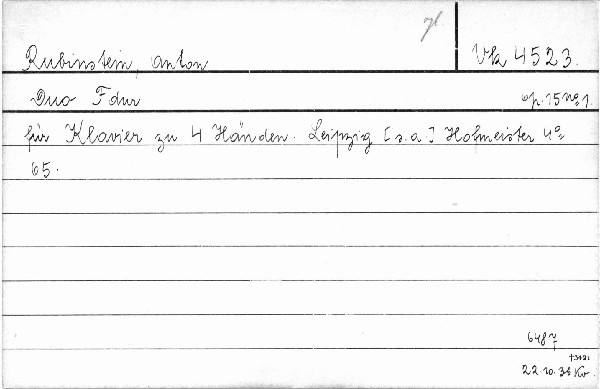 Rubinstein, Anton Vk 4523.
Duo Fdur op. 15 no 1.
für Klavier zu 4 Händen. Leipzig [s.a.] Hofmeister 4°
65.
6487
22.10.34